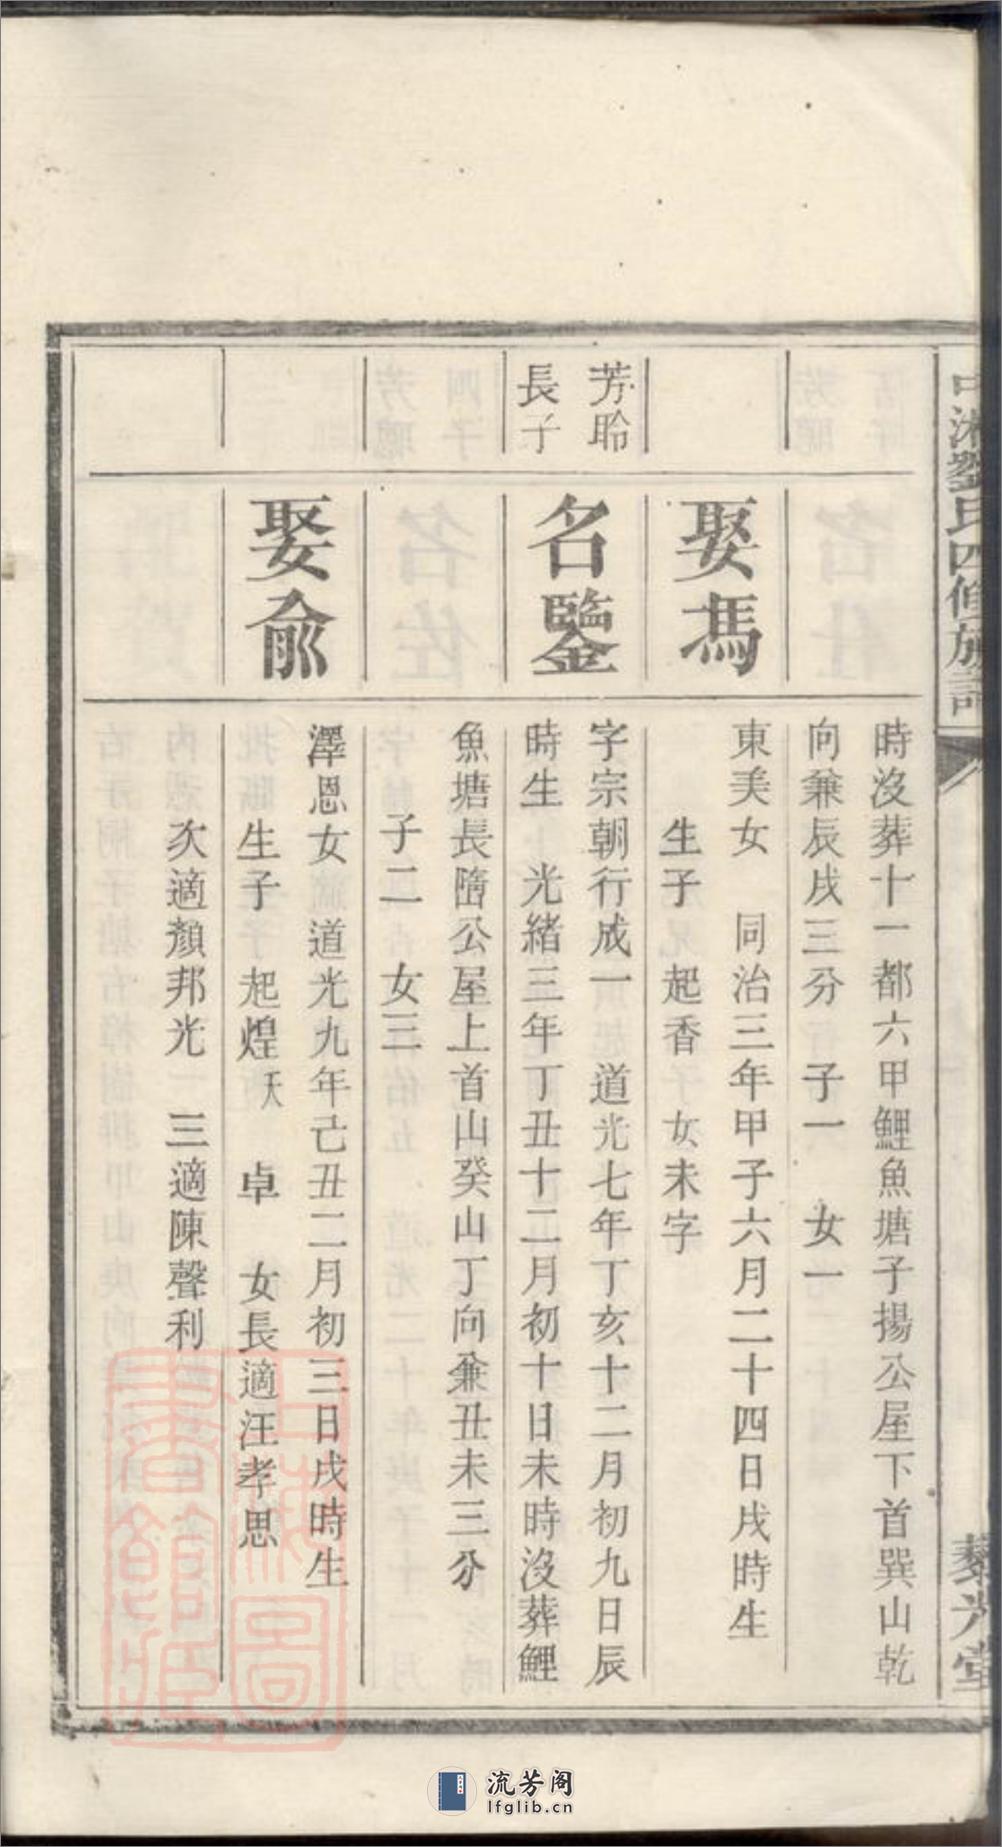 中湘劉氏四修族譜
藜光堂
時沒葬十一都六甲鯉魚塘子揚公屋下首巽山乾
向兼辰戌三分 子一 女一
娶馮
東美女 同治三年甲子六月二十四日戌時生
生子 起香 女未字
芳聆
長子
名鑒
字宗朝行成一 道光七年丁亥十二月初九日辰
時生 光緒三年丁丑十二月初十日未時沒葬鯉
魚塘長隋公屋上首山癸山丁向兼丑未三分
子二 女三
娶俞
澤恩女 道光九年己丑二月初三日戌時生
生子 起煌 卓 女長適汪孝思
次適顏邦光 三適陳聲利
上海圖書館藏
流芳阁
lfglib.cn